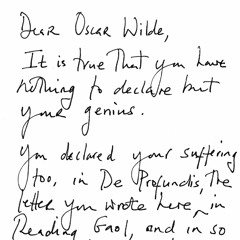 Dear Oscar Wilde,
It is true that you have
nothing to declare but
your genius.
You declared your suffering
too, in De Profundis, the
letter you wrote here ^ in
Reading Gaol, and in so